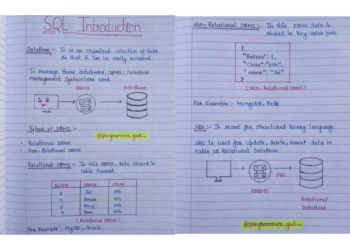 SQL Introduction
Database :- It is an organized collection of data
so that it can be easily accessed.
To manage these databases, DBMS (Database
Management System) are used.
DBMS
Database
@programmer_girl__
Types of DBMS :-
• Relational DBMS
• Non-Relational DBMS
Relational DBMS :- In this DBMS, data stored in
table format.
RollNo
Name
Class
1
2
3
4
(Relational DBMS)
For Example :- MySQL, Oracle
Non-Relational DBMS :- In this DBMS data is
stored in key-value pair.
{
"RollNo": 1,
"class": "5th",
"name":
}
(Non-Relational DBMS)
For Example :- MongoDB, Redis
SQL :- It stand for Structured Query Language.
SQL is used for update, delete, insert data in
table or Relational Database.
SQL
(DBMS)
Relational
Database
@programmer_girl__